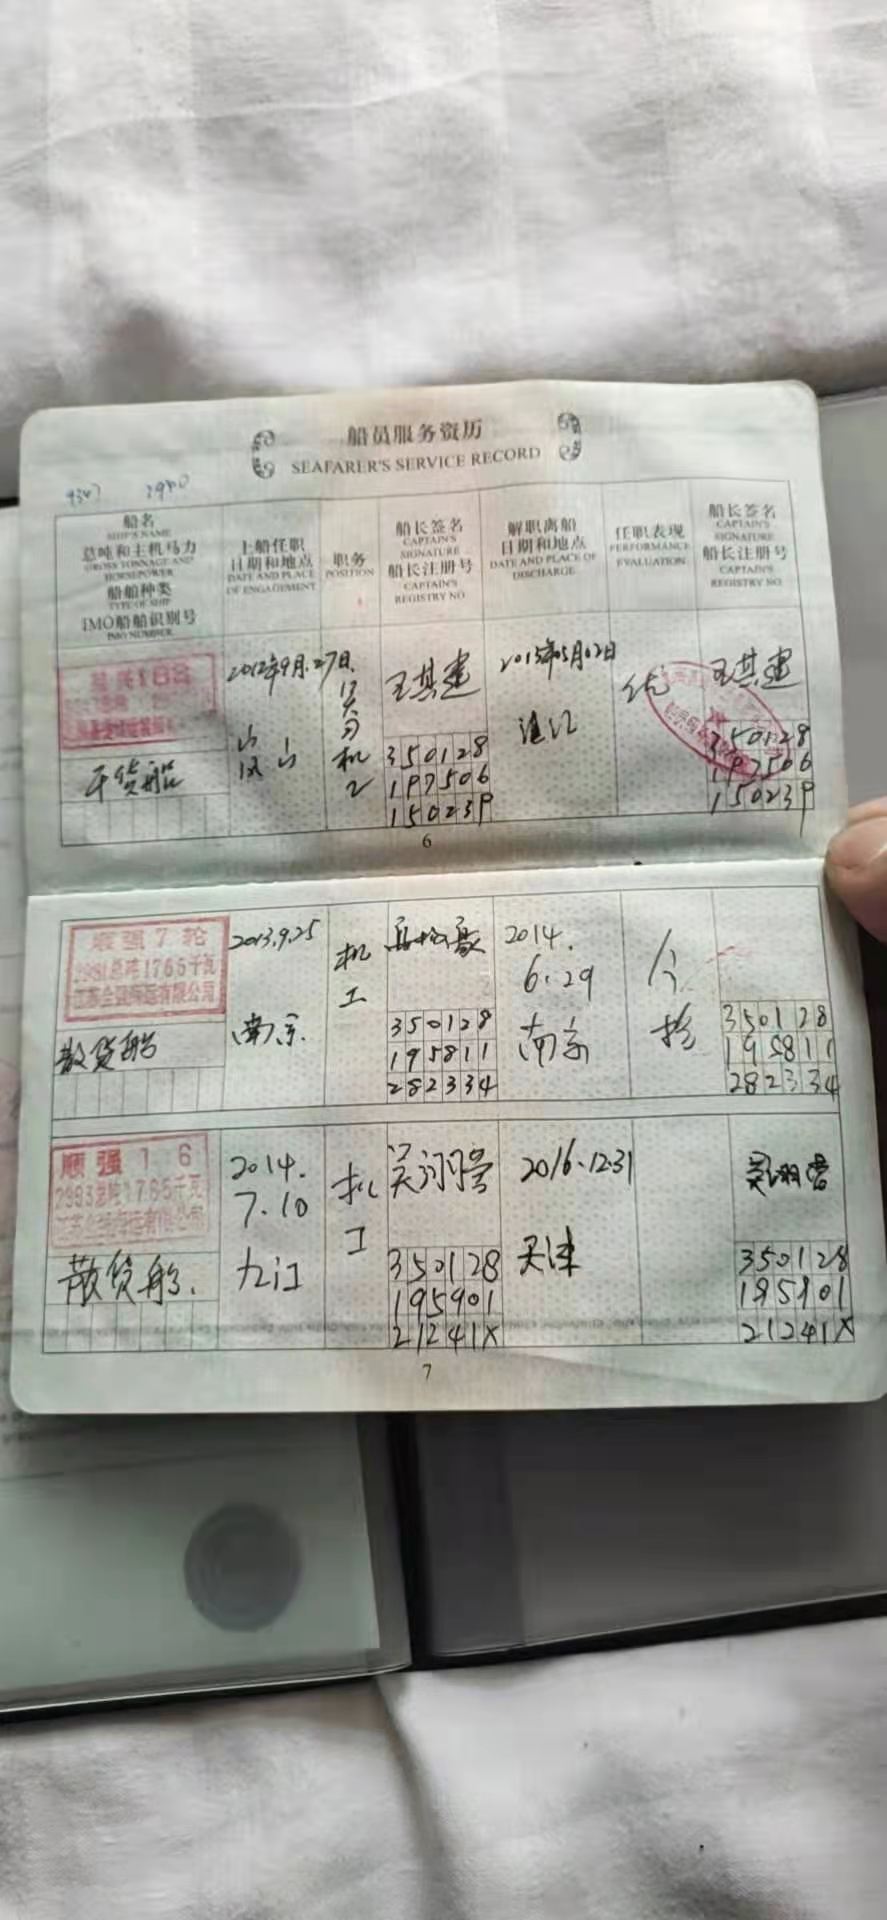 船员服务资历
SEAFARER'S SERVICE RECORD
船名
SHIP'S NAME
总吨和主机马力
GROSS TONNAGE AND
HORSEPOWER
船舶种类
TYPE OF SHIP
IMO船舶识别号
IMO NUMBER
上船任职
日期和地点
DATE AND PLACE
OF ENGAGEMENT
职务
POSITION
船长签名
CAPTAIN'S
SIGNATURE
船长注册号
CAPTAIN'S
REGISTRY NO
解职离船
日期和地点
DATE AND PLACE OF
DISCHARGE
任职表现
PERFORMANCE
EVALUATION
船长签名
CAPTAIN'S
SIGNATURE
船长注册号
CAPTAIN'S
REGISTRY NO
干货船
2012年9月27日
机
王其建
350128
197506
150239
2013年05月02日
优
王其建
350128
197506
150239
6
顺强7轮
2991总吨1765千瓦
江苏全强海运有限公司
散货船
2013.9.25
南京
机
工
350128
195811
282334
2014.
6.29
南京
350128
195811
282334
顺强16
2993总吨1765千瓦
散货船.
2014.
7.10
九江
机
工
350128
195901
21241X
2016.12.31
天津
350128
195901
21241X
7